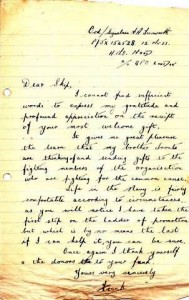 Dear Skip,
I cannot find sufficient
words to express my gratitude and
profound appreciation on the receipt
of your most welcome gift.
It gives me great pleasure
to learn that my brother Scouts
are thinking and sending gifts to the
fighting members of the organisation
who are fighting for the common cause.
Life in the Navy is fairly
comfortable according to circumstances,
as you will notice I have taken the
first step on the ladder of promotion
but which is by no means the last
if I can help it, you can be sure.
Once again I thank yourself
& the donors to your fund
Yours very sincerely